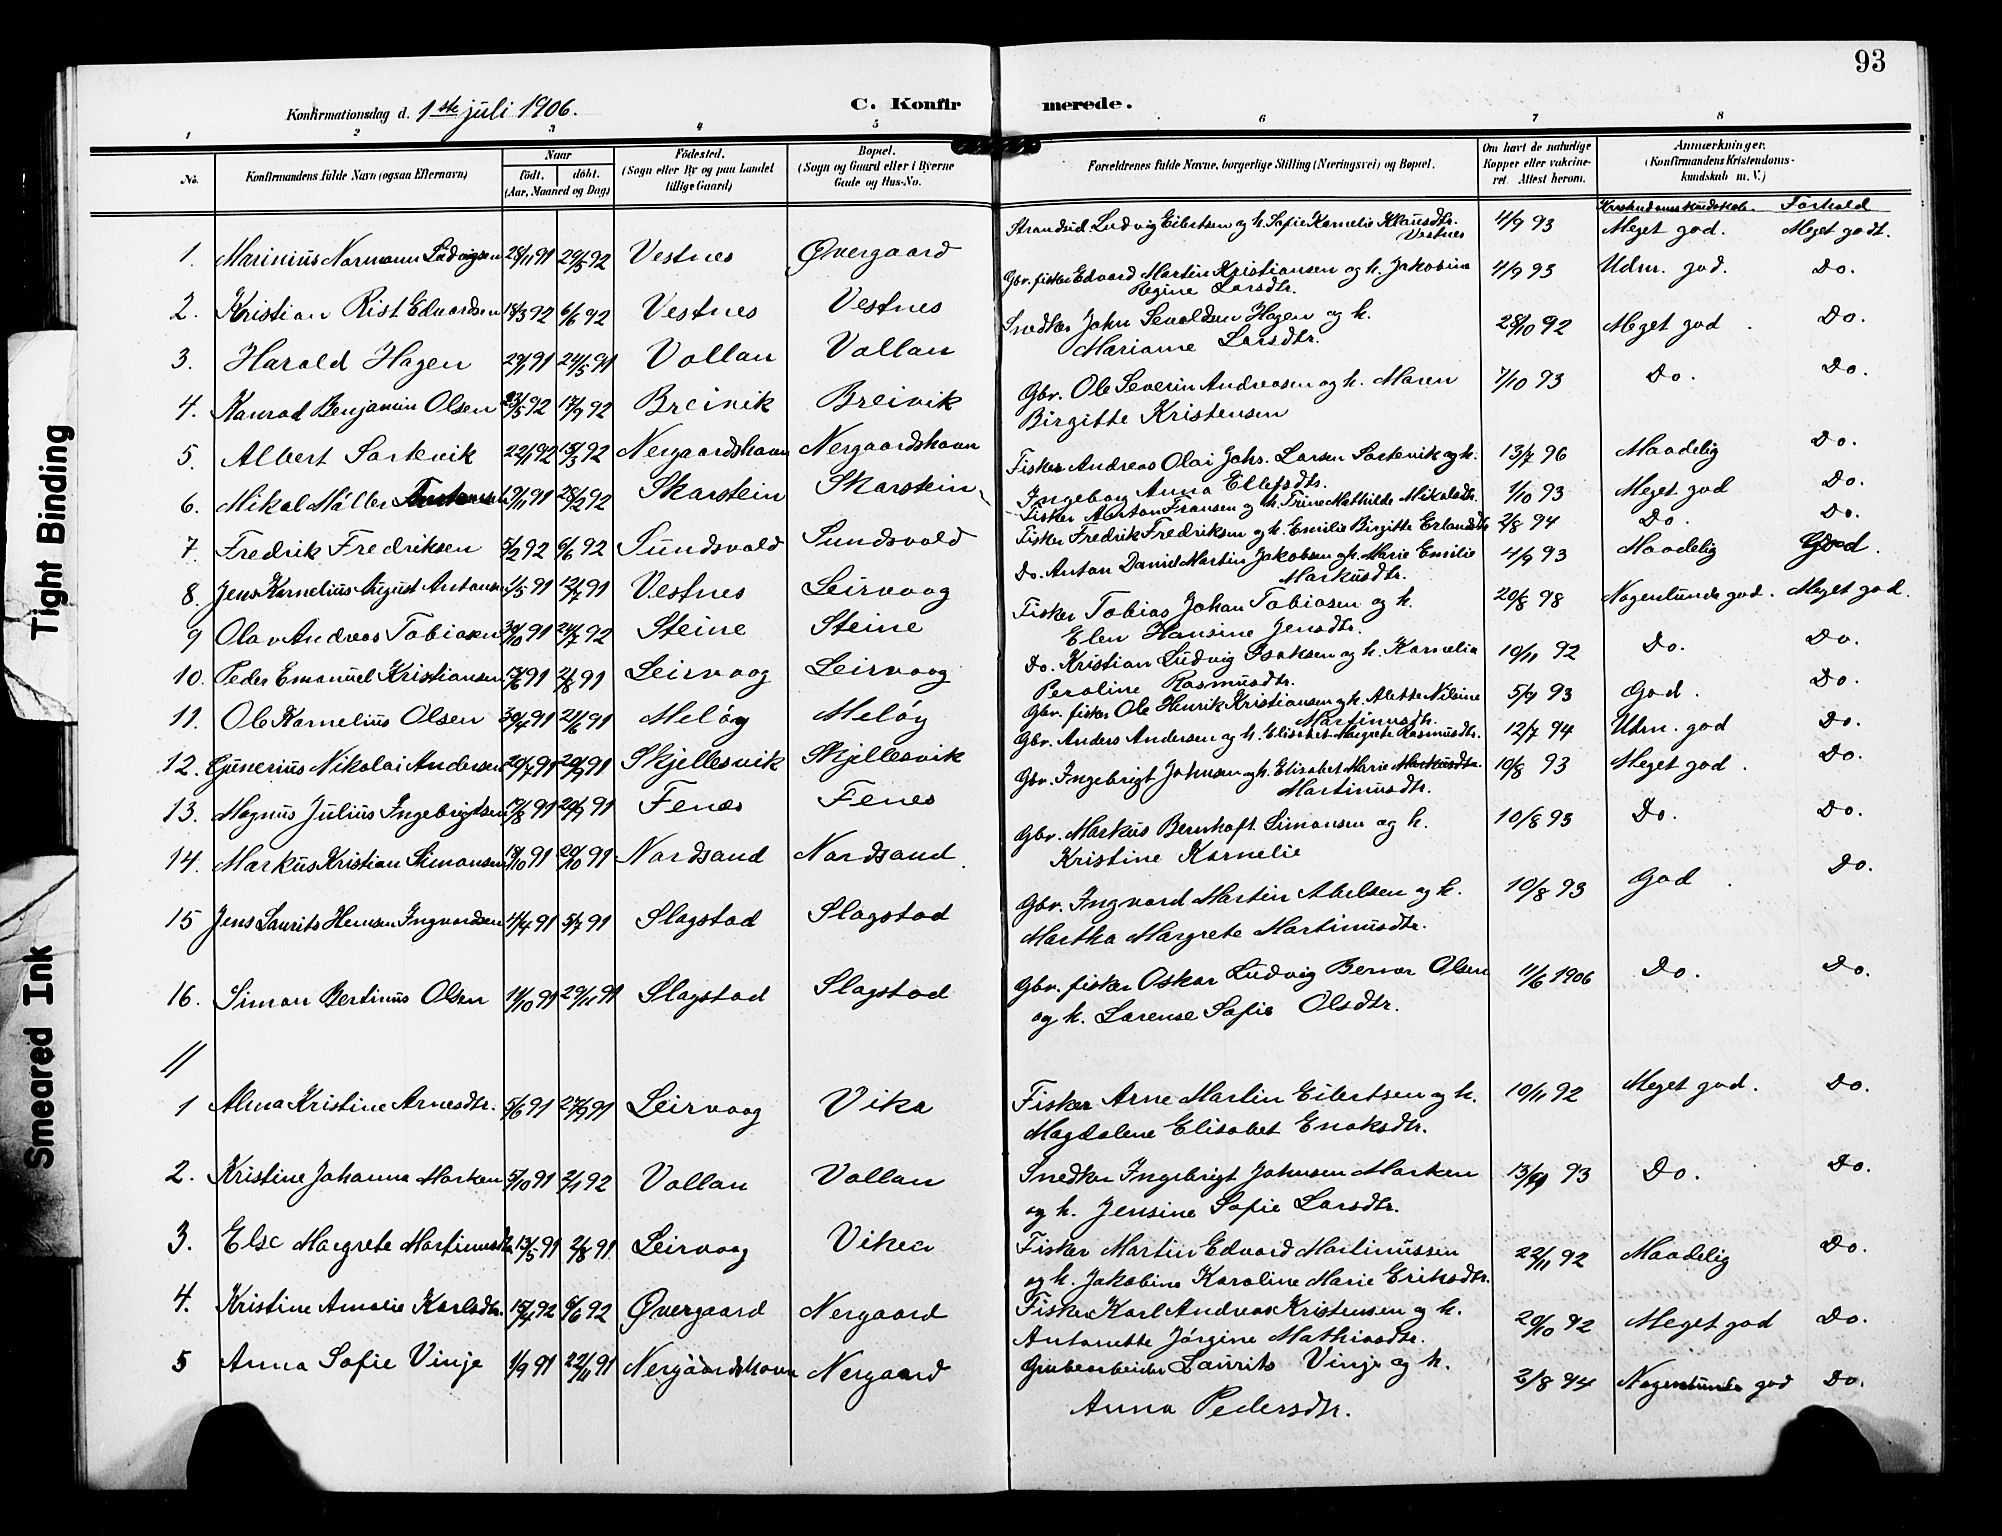 93
Konfirmationsdag d. 1ste juli 1906.
C. Konfir merede.
1 2 3 4 5 6 7 8
No. Konfirmandens fulde Navn (ogsaa Efternavn) Naar født. døbt. (Aar, Maaned og Dag) Fødested. (Sogn eller By og paa Landet tillige Gaard) Bopæl. (Sogn og Gaard eller i Byerne Gade og Hus-No. Forældrenes fulde Navne, borgerlige Stilling (Næringsvei) og Bopæl. Om havt de naturlige Kopper eller vakcineret. Attest herom. Anmærkninger. (Konfirmandens Kristendomskundskab m. V.)
Kristendomskundskab. Forhold
1. Marinius Normann Ludvigsen 29/5 92 Vestnes Øvergaard Strandsid. Ludvig Eilertsen og h. Sofie Kornelie Klausdtr. Vestnes 4/9 93 Meget god. Meget godt.
2. Kristian Rist Edvardsen 18/3 92 6/6 92 Vestnes Vestnes Gbr. fisker Edvard Martin Kristiansen og h. Jakobina Regine Larsdtr. 4/9 93 Udm. god. Do.
3. Harald Hagen 24/5 91 Vollan Vollan Snedker John Sevaldsen Hagen og h. Marianne Larsdtr. 28/10 92 Meget god. Do.
4. Konrad Benjamin Olsen 17/9 92 Breivik Breivik Gbr. Ole Severin Andreasen og h. Maren Birgitte Kristensen 7/10 93 Do. Do.
5. Albert Sortevik 22/1 92 13/3 92 Nergaardshavn Nergaardshavn Fisker Andreas Olai Johs. Larsen Sortevik og h. Ingeborg Anna Ellefsdtr. 13/7 96 Maadelig Do.
6. Mikal Møller 28/2 92 Skarstein Skarstein Fisker Anton Fransen og h. Trine Mathilde Mikalsdtr. 1/10 93 Meget god Do.
7. Fredrik Fredriksen 5/2 92 6/6 92 Sundsvold Sundsvold Fisker Fredrik Fredriksen og h. Emilie Birgitte Erlandsdtr. 2/8 94 Do. Do.
8. Jens Kornelius August Antonsen 1/5 91 12/7 91 Vestnes Leirvaag Do. Anton Daniel Martin Jakobsen og h. Marie Emilie Markusdtr. 4/9 93 Maadelig God.
9 Olav Andreas Tobiasen 30/10 91 24/7 92 Steine Steine Fisker Tobias Johan Tobiasen og h. Elen Hansine Jensdtr. 20/8 98 Nogenlunde god. Meget god.
10. Peder Emanuel Kristiansen 2/8 91 Leirvaag Leirvaag Do. Kristian Ludvig Isaksen og h. Kornelia Peroline Rasmusdtr. 10/11 92 Do. Do.
11. Ole Kornelius Olsen 30/4 91 21/6 91 Meløy Meløy Gbr. fisker Ole Henrik Kristiansen og h. Alette Nilsine Martinusdtr. 5/9 93 God. Do.
12. Gunerius Nikolai Andersen 20/7 91 20/9 91 Skjellesvik Skjellesvik Gbr. Anders Andersen og h. Elisabet Margrete Rasmusdtr. 12/7 94 Udm. god Do.
13. Magnus Julius Ingebrigtsen 20/9 91 Fenes Fenes Gbr. Ingebrigt Johnsen og h. Elisabet Marie Markusdtr. Martinusdtr. 10/8 93 Meget god. Do.
14. Markus Kristian Simonsen 20/10 91 Nordsand Nordsand. Gbr. Markus Bernhoft Simonsen og h. Kristine Kornelie 10/8 93 Do. Do.
15 Jens Laurits Ingvardsen 4/4 91 5/7 91 Slagstad Slagstad Gbr. Ingvard Martin Abelsen og h. Martha Margrete Martinusdtr. 10/8 93 God. Do.
16. Simon Bertinus Olsen 11/10 91 29/11 91 Slagstad Slagstad Gbr. fisker Oskar Ludvig Olsen og h. Lorense Sofie Olsdtr. 11/6 1906 Do. Do.
1 Alma Kristine Arnesdtr. 5/6 91 27/9 91 Leirvaag Vika Fisker Arne Martin Eilertsen og h. Magdalene Elisabet Enoksdtr. 10/11 92 Meget god. Do.
2. Kristine Johanna Marken 5/10 91 2/1 92 Vollan Vollan Snedker Ingebrigt Johnsen Marken og h. Jensine Sofie Larsdtr. 13/9 93 Do. Do.
3. Else Margrete Martinusdtr. 13/5 91 2/8 91 Leirvaag Viken Fisker Martin Edvard Martinussen og h. Jakobine Karoline Marie Eriksdtr. 22/11 92 Maadelig Do.
4. Kristine Amalie Karlsdtr. 15/4 92 6/6 92 Øvergaard Nergaard Fisker Karl Andreas Kristensen og h. Antonette Jørgine Mathiasdtr. 20/10 92 Meget god Do.
5 Anna Sofie Vinje 1/9 91 22/11 91 Nergaardshavn Nergaard Grubearbeider Laurits Vinje og h. Anna Pedersdtr. 2/8 94 Nogenlunde god Do.
Tight Binding
Smeared Ink